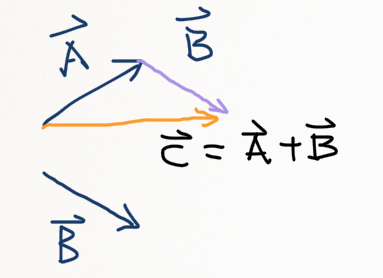 A⃗ B⃗
c⃗ = A⃗ + B⃗
B⃗